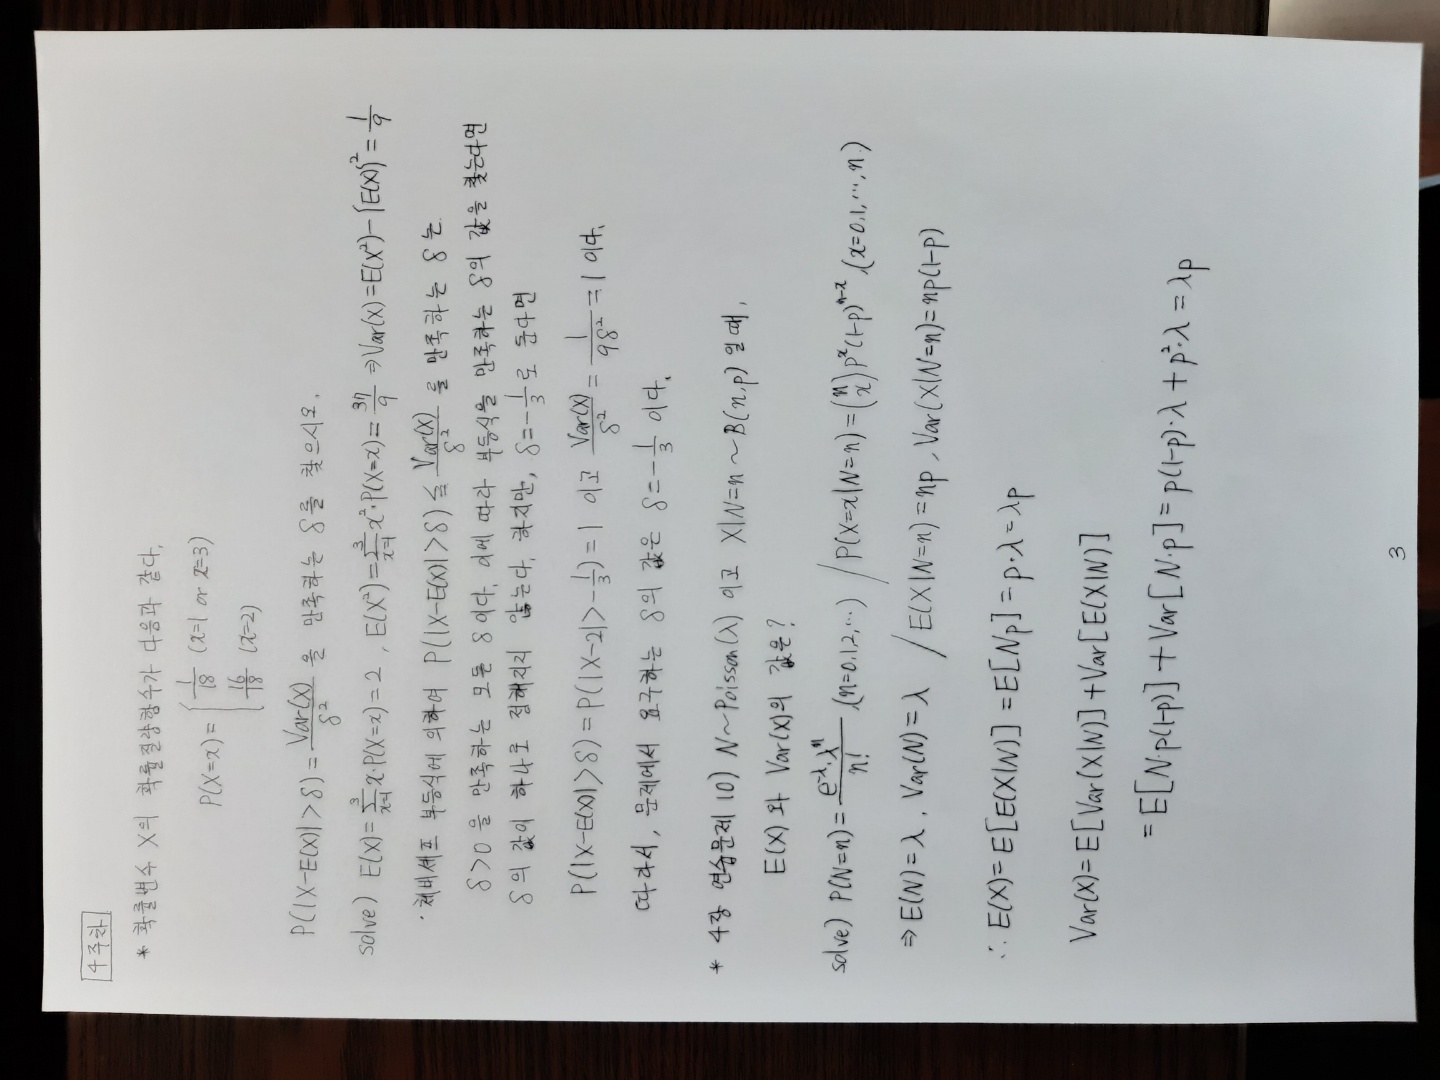 4주차
* 확률변수 X의 확률질량함수가 다음과 같다.
P(X=x) = { 1/18 (x=1 or x=3)
16/18 (x=2)
P(|X-E(X)|>δ) = Var(X)/δ² 을 만족하는 δ를 찾으시오.
solve) E(X)=∑_{x=1}^{3} x·P(X=x)=2, E(X²)=∑_{x=1}^{3} x²·P(X=x)=37/9 ⇒ Var(X)=E(X²)-{E(X)}²=1/9
·체비셰프 부등식에 의하여 P(|X-E(X)|>δ) ≤ Var(X)/δ² 을 만족하는 δ는
δ>0 을 만족하는 모든 δ이다. 이에 따라 부등식을 만족하는 δ의 값을 찾는다면
δ의 값이 하나로 정해지지 않는다. 하지만, δ=-1/3로 둔다면
P(|X-E(X)|>δ) = P(|X-2|>-1/3) = 1 이고 Var(X)/δ² = 1/9δ² = 1 이다.
따라서, 문제에서 요구하는 δ의 값은 δ=-1/3 이다.
* 4장 연습문제 10) N~Poisson(λ) 이고 X|N=n ~ B(n,p) 일 때,
E(X)와 Var(X)의 값은?
solve) P(N=n) = e^{-λ}·λ^n/n! (n=0,1,2,…) / P(X=x|N=n) = (n x)p^x(1-p)^{n-x} (x=0,1,…,n.)
⇒ E(N)=λ, Var(N)=λ / E(X|N=n)=np, Var(X|N=n)=np(1-p)
∴ E(X)=E[E(X|N)]=E[Np]=p·λ=λp
Var(X)=E[Var(X|N)]+Var[E(X|N)]
=E[N·p(1-p)]+Var[N·p]=p(1-p)·λ+p²·λ=λp
3